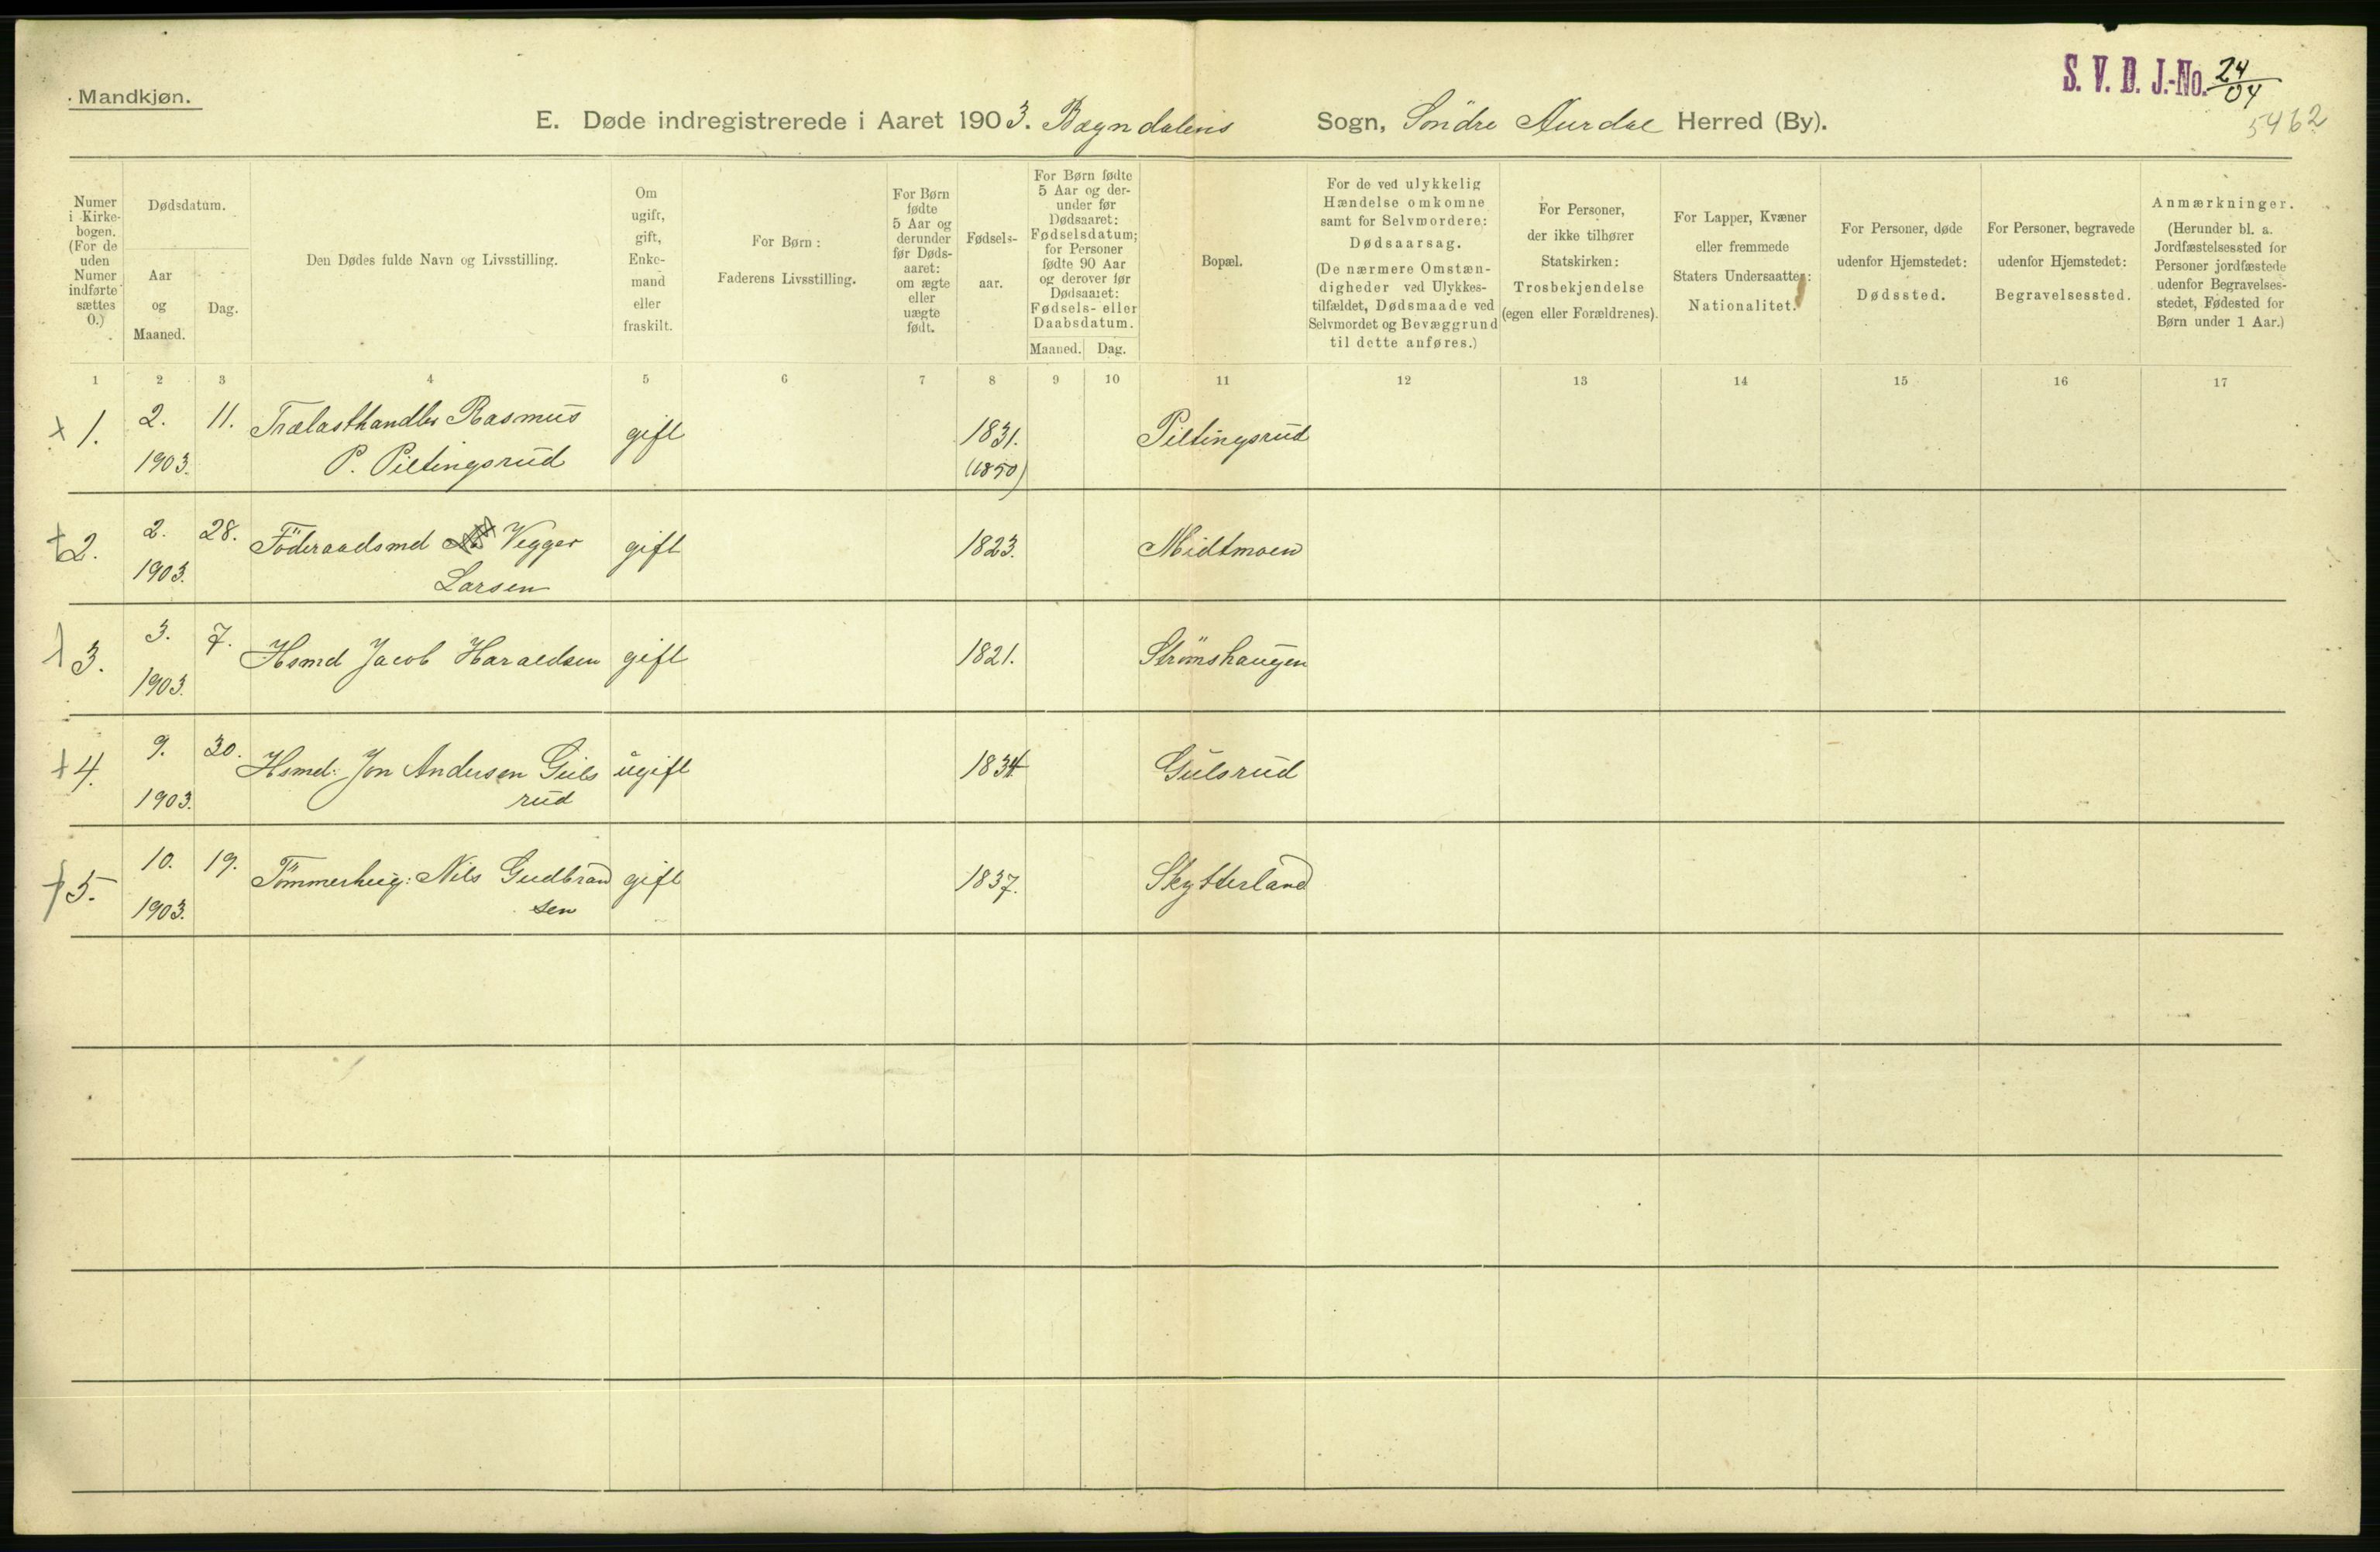 Mandkjøn.
S. V. D. J.-No. 24/04
5462
E. Døde indregistrerede i Aaret 1903. Bægndalens Sogn, Söndre Aurdal Herred (By).
Numer
i Kirke-
bogen.
(For de
uden
Numer
indførte
sættes
0.)
Dødsdatum.
Aar
og
Maaned.
Dag.
Den Dødes fulde Navn og Livsstilling.
Om
ugift,
gift,
Enke-
mand
eller
fraskilt.
For Børn:
Faderens Livsstilling.
For Børn
fødte
5 Aar og
derunder
før Døds-
aaret:
om ægte
eller
uægte
født.
Fødsels-
aar.
For Børn fødte
5 Aar og der-
under før
Dødsaaret:
Fødselsdatum;
for Personer
fødte 90 Aar
og derover før
Dødsaaret:
Fødsels- eller
Daabsdatum.
Maaned. Dag.
Bopæl.
For de ved ulykkelig
Hændelse omkomne
samt for Selvmordere:
Dødsaarsag.
(De nærmere Omstæn-
digheder ved Ulykkes-
tilfældet, Dødsmaade ved
Selvmordet og Bevæggrund
til dette anføres.)
For Personer,
der ikke tilhører
Statskirken:
Trosbekjendelse
(egen eller Forældrenes).
For Lapper, Kvæner
eller fremmede
Staters Undersaatter:
Nationalitet.
For Personer, døde
udenfor Hjemstedet:
Dødssted.
For Personer, begravede
udenfor Hjemstedet:
Begravelsessted.
Anmærkninger.
(Herunder bl. a.
Jordfæstelsessted for
Personer jordfæstede
udenfor Begravelses-
stedet, Fødested for
Børn under 1 Aar.)
1 2 3 4 5 6 7 8 9 10 11 12 13 14 15 16 17
1. 2. 11. Trælasthandler Rasmus gift 1831. Piltingsrud
1903. P. Piltingsrud (1850)
2. 2. 28. Föderaadsmd Veggar gift 1823. Midtmoen
1903. Larsen
3. 3. 7. Hsmd Jacob Haraldsen gift 1821. Strömshaugen
1903.
4. 9. 30. Hsmd: Jon Andersen Guls ugift 1834 Gulsrud
1903. rud
5. 10. 19. Tömmerhug: Nils Gudbrand gift 1837. Skytterland
1903. sen